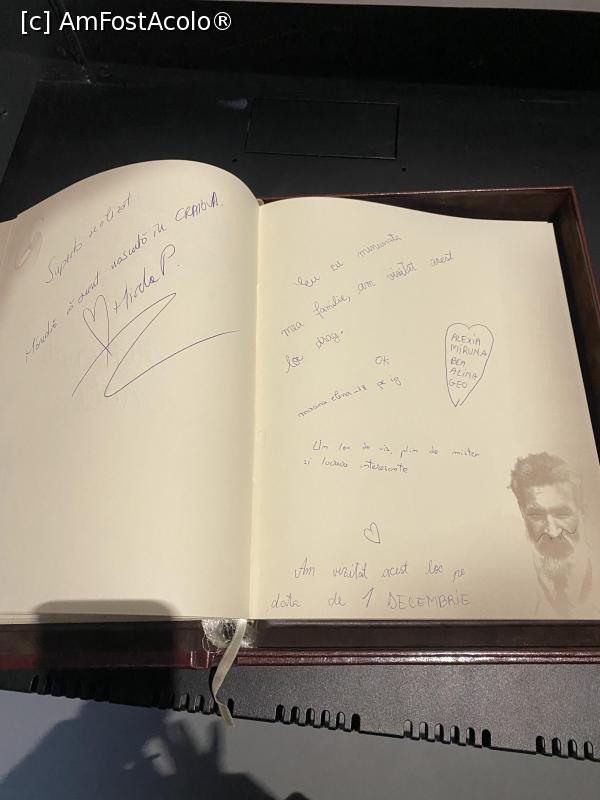 [c] AmFostAcolo®
Superb realizat
Mândră că sunt născută în CRAIOVA.
Eu cu minunata
mea familie, am vizitat acest
loc drag.
Ok
pe ig.
ALEXIA
MIRUNA
BEA
ALINA
GEO
Un loc de vis, plin de mister
si lucruri interesante
Am vizitat acest loc pe
data de 1 DECEMBRIE